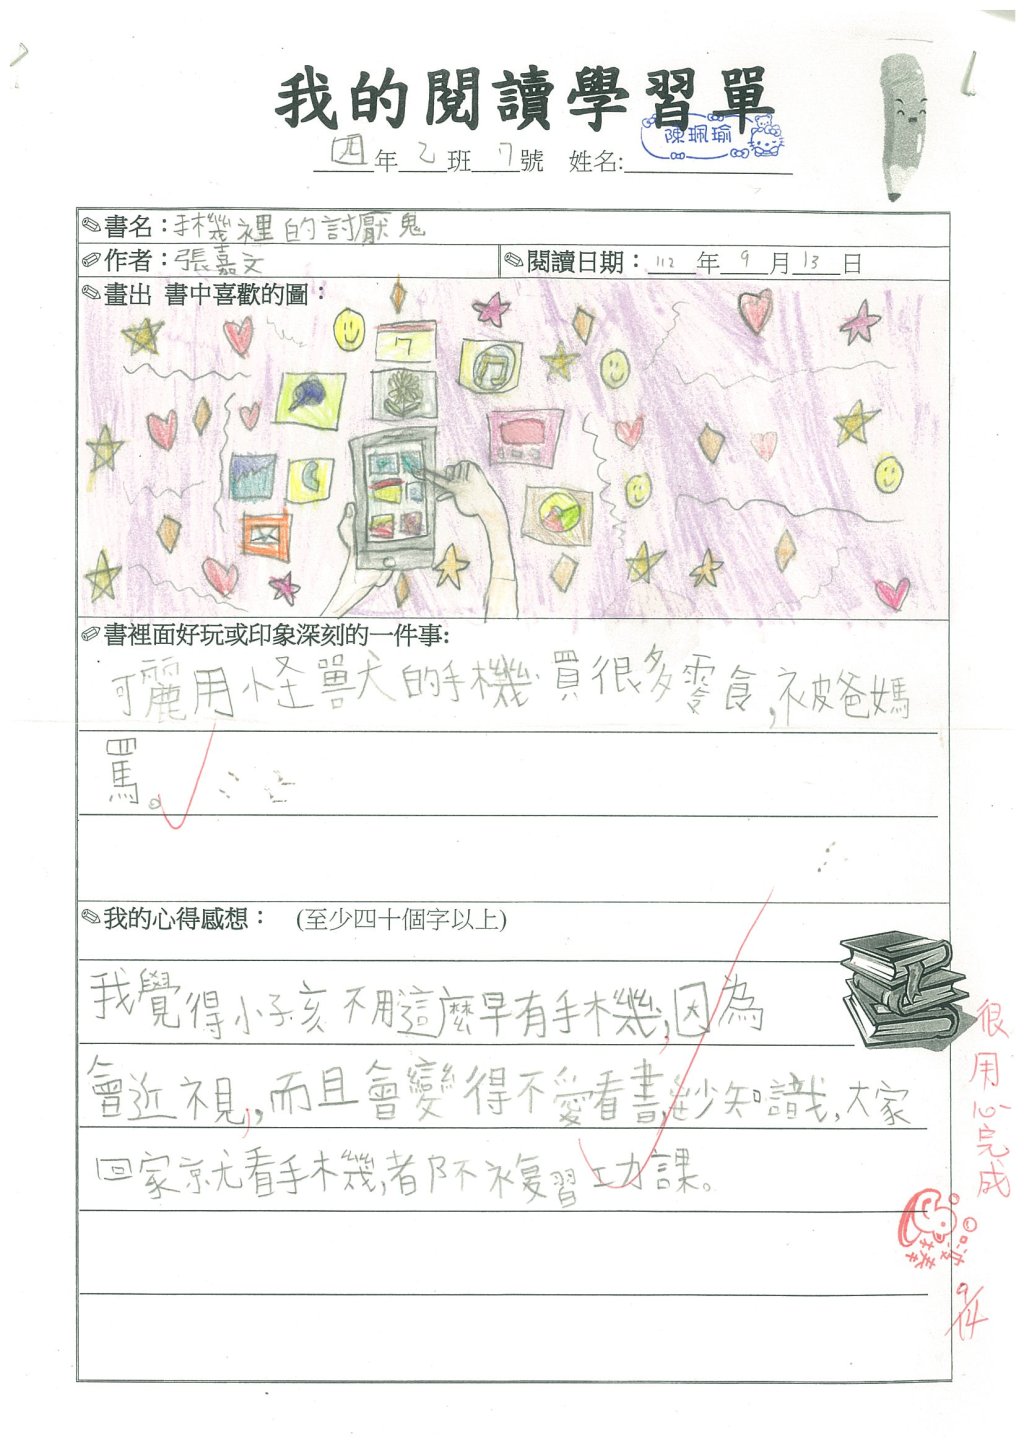 我的閱讀學習單
陳珮瑜
四年乙班7號 姓名:
書名：手機裡的討厭鬼
作者：張嘉文 閱讀日期：112年9月13日
畫出 書中喜歡的圖：
7
書裡面好玩或印象深刻的一件事:
可麗用怪獸犬的手機買很多零食,被爸媽
罵。
我的心得感想： (至少四十個字以上)
我覺得小孩不用這麼早有手機,因為
會近視,而且會變得不愛看書,吵知識,大家
回家就看手機,都不複習功課。
很用心完成
9/14